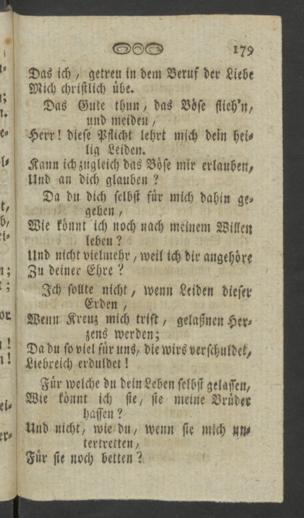 179
Das ich, getreu in dem Beruf der Liebe
Mich christlich übe.
Das Gute thun, das Böse flieh'n,
und meiden,
Herr! diese Pflicht lehrt mich dein hei-
lig Leiden.
Kann ich zugleich das Böse mir erlauben,
Und an dich glauben?
Da du dich selbst für mich dahin ge-
geben,
Wie könnt ich noch nach meinem Willen
leben?
Und nicht vielmehr, weil ich dir angehöre
Zu deiner Ehre?
Ich sollte nicht, wenn Leiden dieser
Erden,
Wenn Kreuz mich trift, gelaßnen Her-
zens werden;
Da du so viel für uns, die wirs verschuldet,
Liebreich erduldet!
Für welche du dein Leben selbst gelassen,
Wie könnt ich sie, sie meine Brüder
hassen?
Und nicht, wie du, wenn sie mich un-
tertretten,
Für sie noch betten?